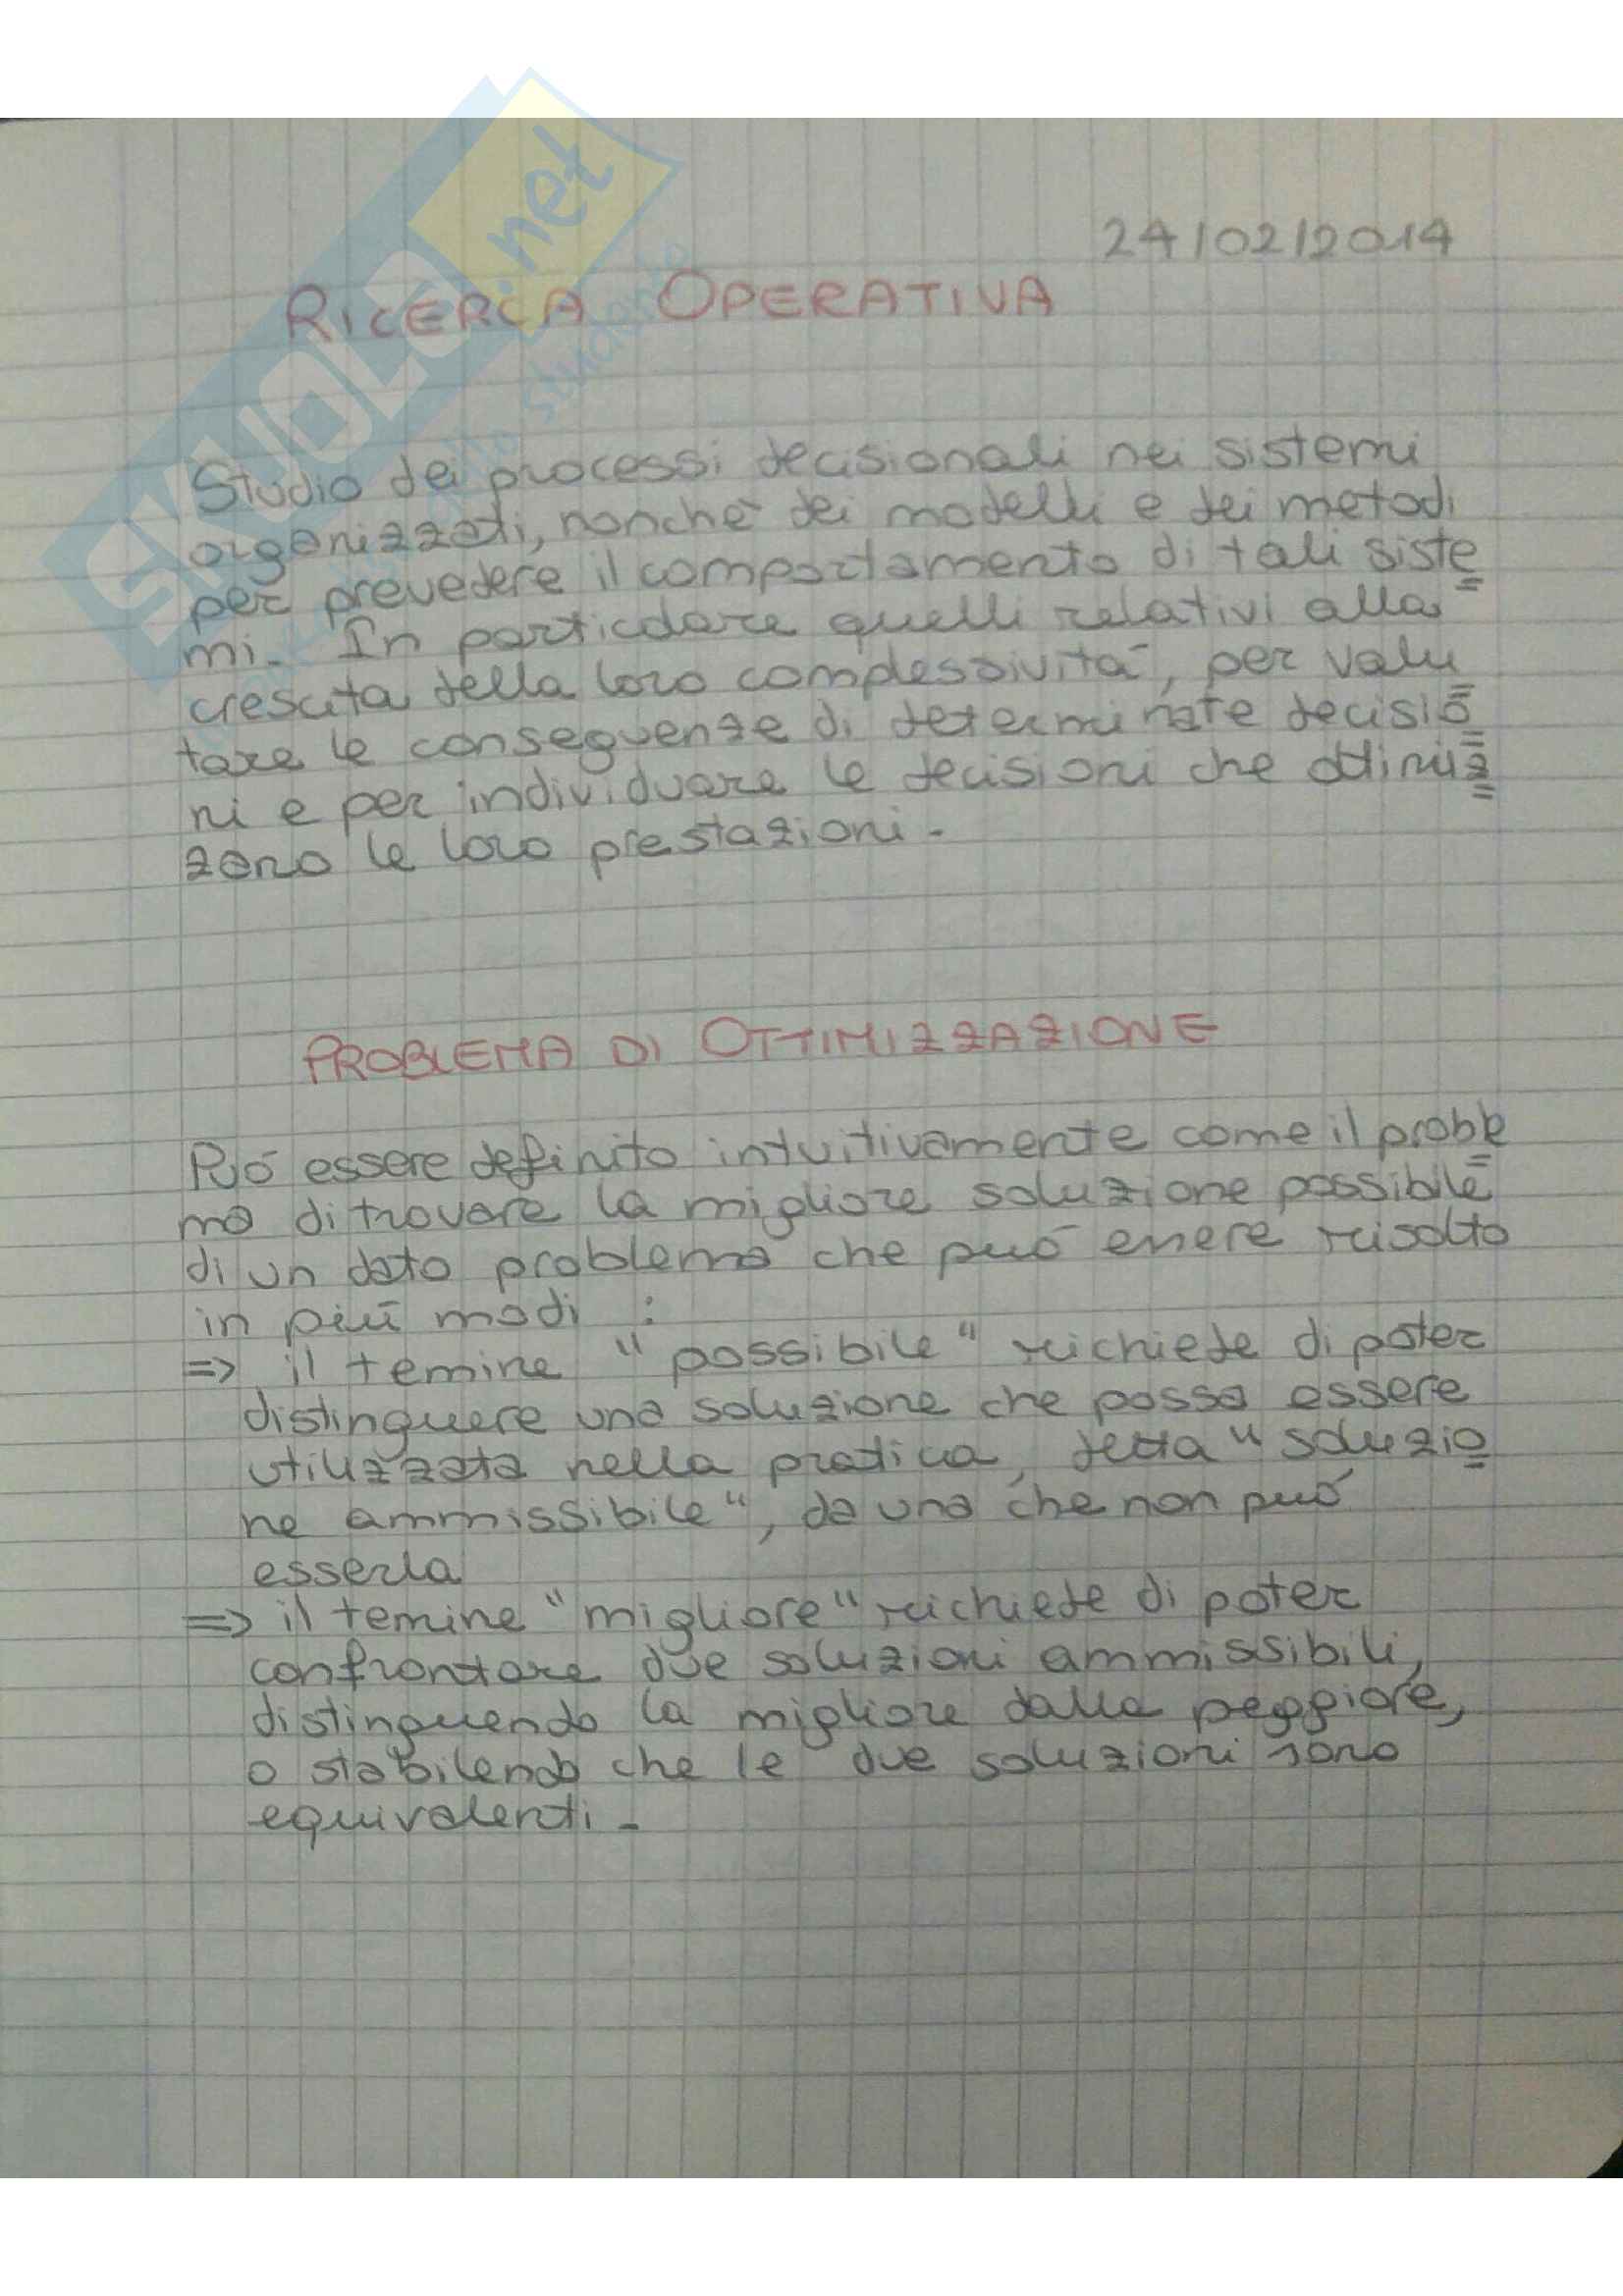 SKUOLA.net
24/02/2014
RICERCA OPERATIVA
Studio dei processi decisionali nei sistemi
organizzati, nonchè dei modelli e dei metodi
per prevedere il comportamento di tali siste
mi. In particolare quelli relativi alla
crescita della loro complessività, per valu
tare le conseguenze di determinate decisio
ni e per individuare le decisioni che ottimiz
zano le loro prestazioni.
PROBLEMA DI OTTIMIZZAZIONE
Può essere definito intuitivamente come il proble
ma di trovare la migliore soluzione possibile
di un dato problema che può essere risolto
in più modi :
=> il temine "possibile" richiede di poter
distinguere una soluzione che possa essere
utilizzata nella pratica, detta "soluzio
ne ammissibile", da una che non può
esserla
=> il temine "migliore" richiede di poter
confrontare due soluzioni ammissibili,
distinguendo la migliore dalla peggiore,
o stabilendo che le due soluzioni sono
equivalenti.